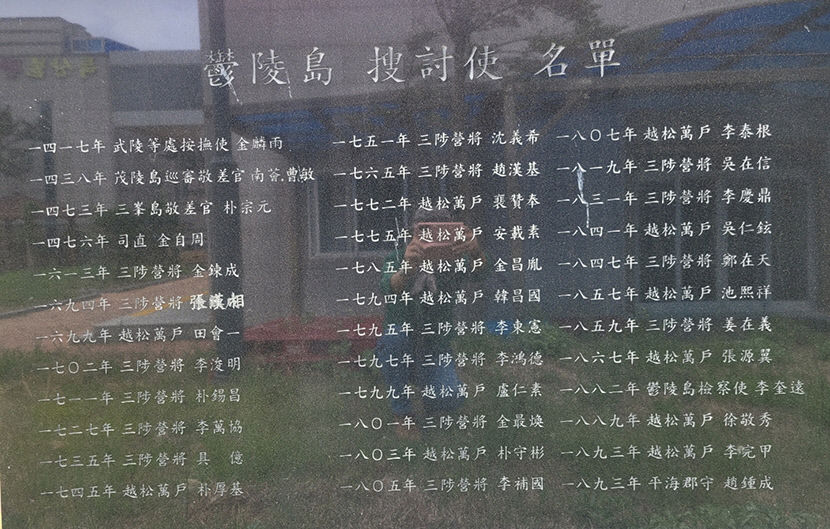 鬱陵島 搜討使 名單
一四一七年 武陵等處按撫使 金麟雨
一四三八年 茂陵島巡審敬差官 南薈,曹敏
一四七三年 三峯島敬差官 朴宗元
一四七六年 司直 金自周
一六一三年 三陟營將 金鍊成
一六九四年 三陟營將 張漢相
一六九九年 越松萬戶 田會一
一七〇二年 三陟營將 李浚明
一七一一年 三陟營將 朴錫昌
一七二七年 三陟營將 李萬協
一七三五年 三陟營將 具 億
一七四五年 越松萬戶 朴厚基
一七五一年 三陟營將 沈義希
一七六五年 三陟營將 趙漢基
一七七二年 越松萬戶 裵贊奉
一七七五年 越松萬戶 安載素
一七八五年 越松萬戶 金昌胤
一七九四年 越松萬戶 韓昌國
一七九五年 三陟營將 李東憲
一七九七年 三陟營將 李鴻德
一七九九年 越松萬戶 盧仁素
一八〇一年 三陟營將 金最煥
一八〇三年 越松萬戶 朴守彬
一八〇五年 三陟營將 李補國
一八〇七年 越松萬戶 李泰根
一八一九年 三陟營將 吳在信
一八三一年 三陟營將 李慶鼎
一八四一年 越松萬戶 吳仁鉉
一八四七年 三陟營將 鄭在天
一八五七年 越松萬戶 池熙祥
一八五九年 三陟營將 姜在義
一八六七年 越松萬戶 張源翼
一八八二年 鬱陵島檢察使 李奎遠
一八八九年 越松萬戶 徐敬秀
一八九三年 越松萬戶 李完甲
一八九三年 平海郡守 趙鍾成